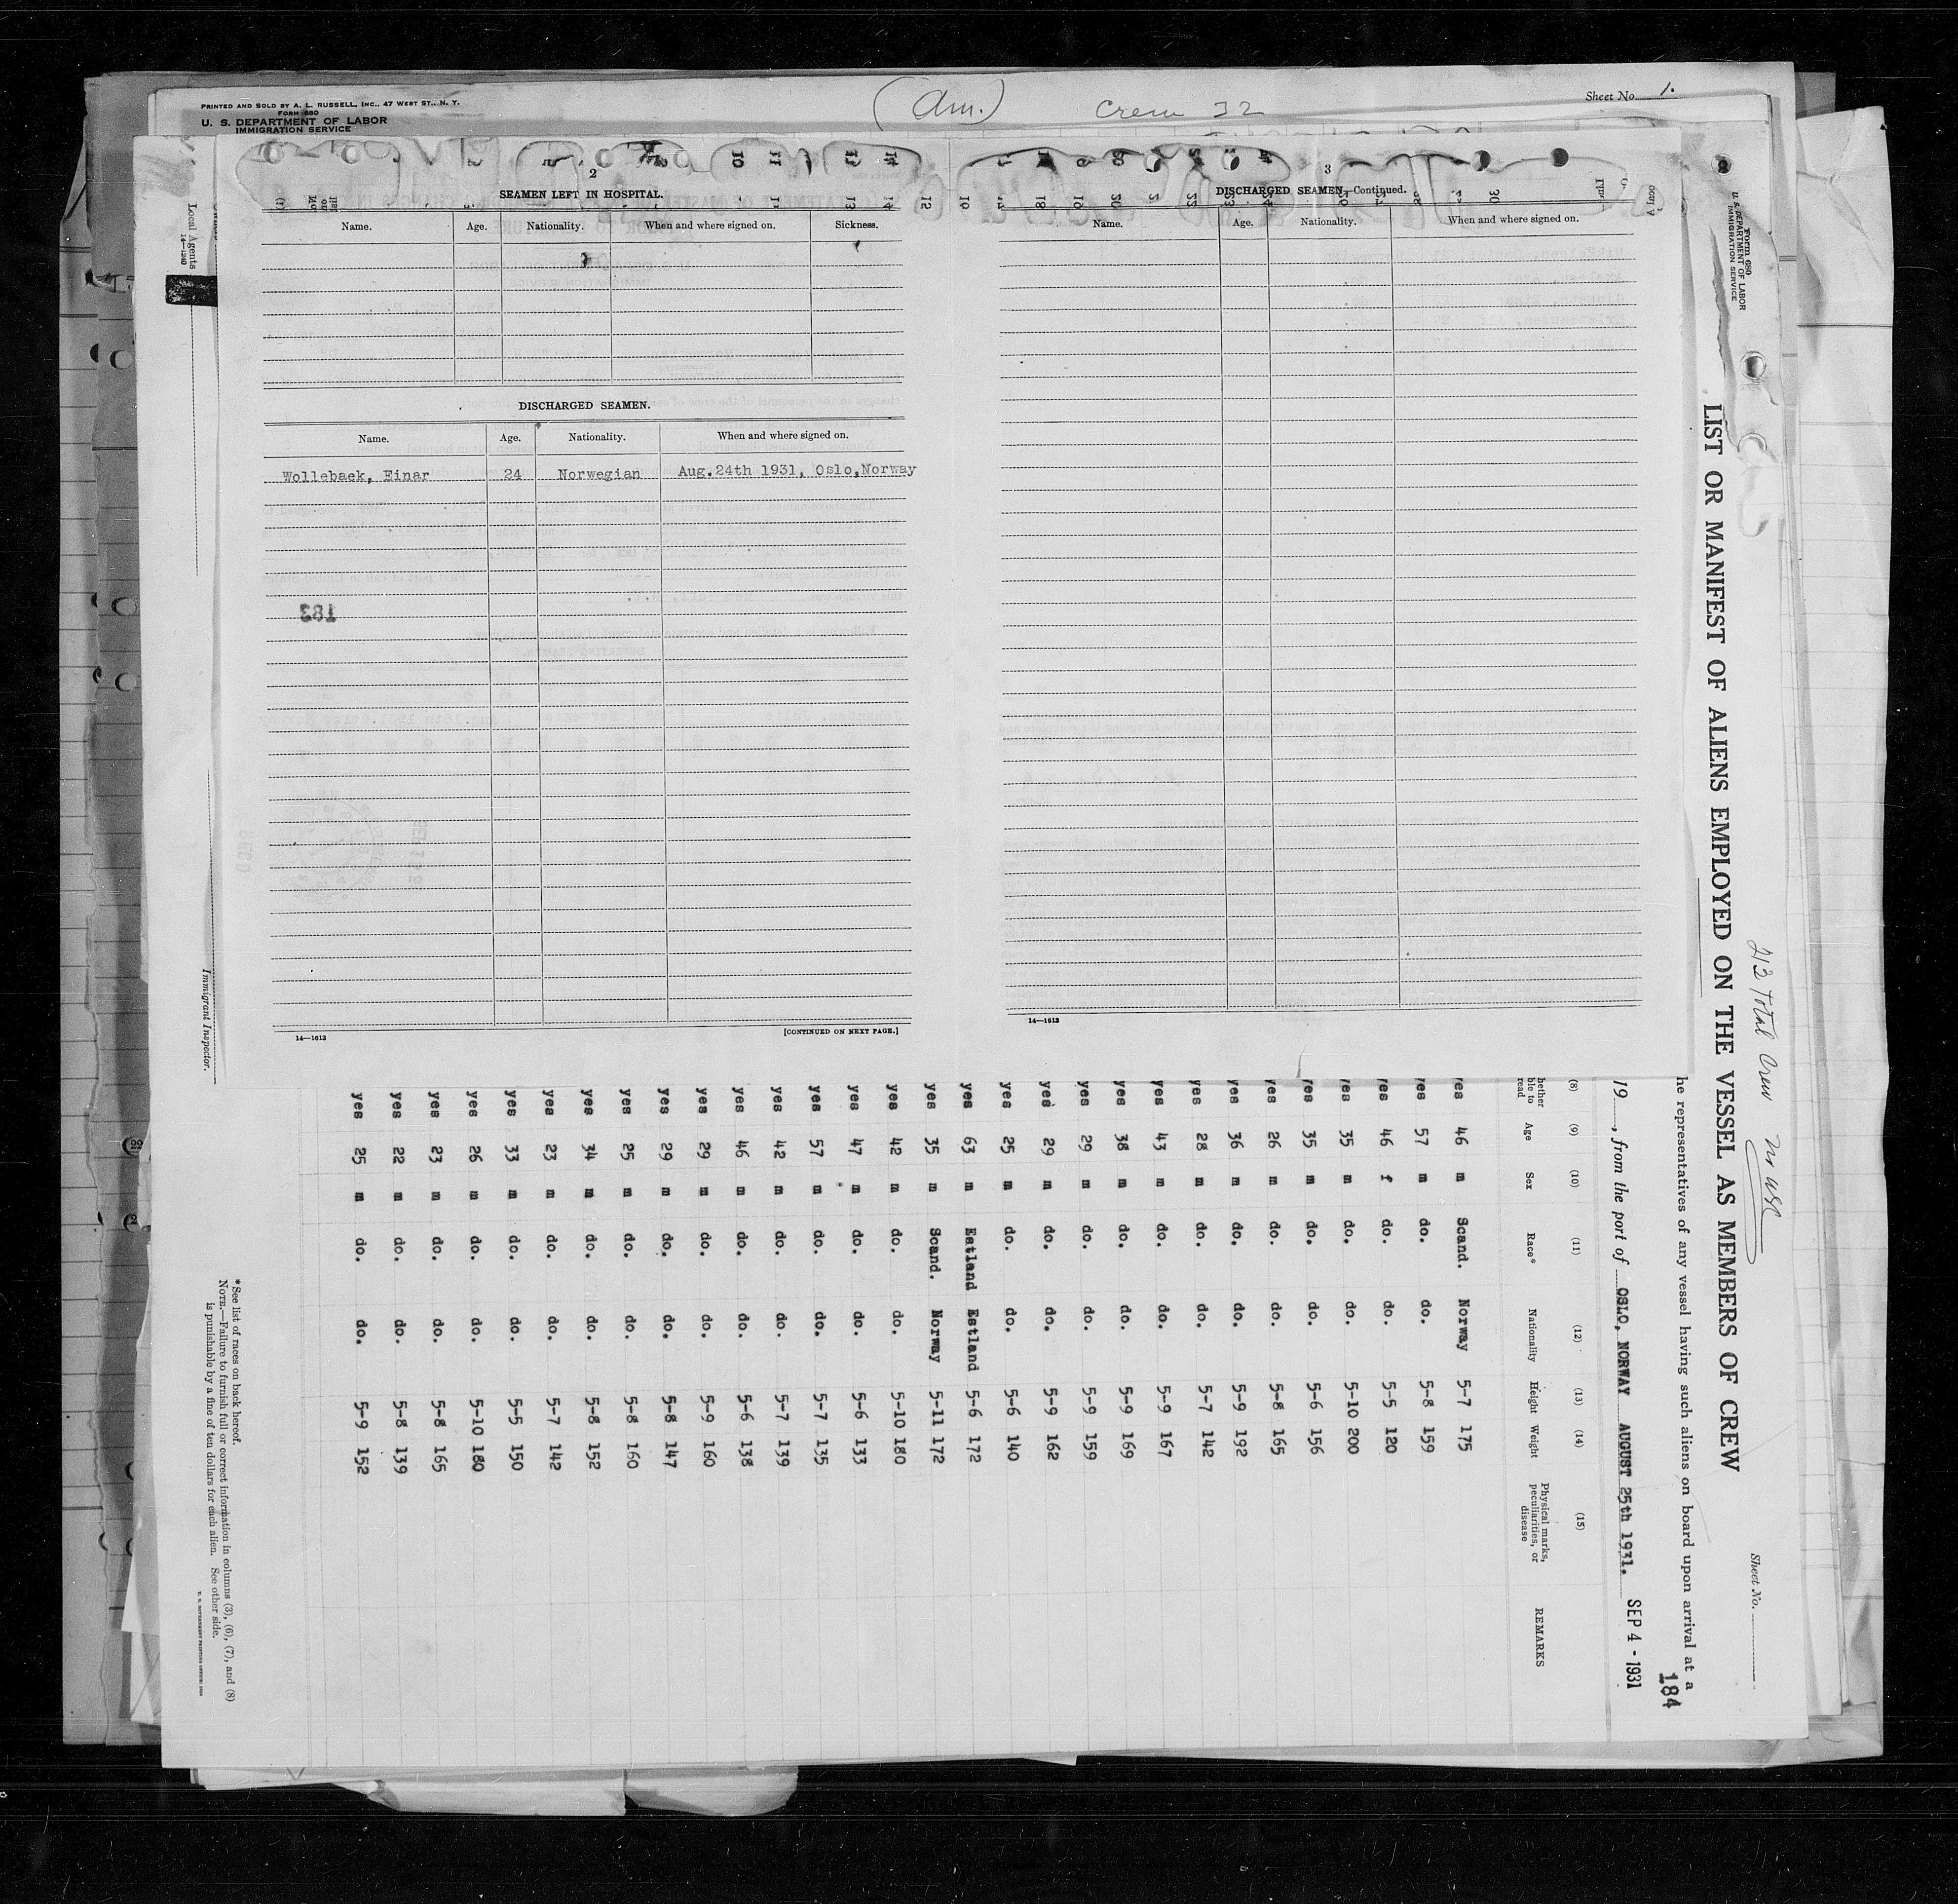 PRINTED AND SOLD BY A. L. RUSSELL, INC., 47 WEST ST., N. Y.
FORM 680
U. S. DEPARTMENT OF LABOR
IMMIGRATION SERVICE
(Am.)
Crew 32
Sheet No. 1.
2
SEAMEN LEFT IN HOSPITAL.
Name. Age. Nationality. When and where signed on. Sickness.
DISCHARGED SEAMEN.
Name. Age. Nationality. When and where signed on.
Wollebaek, Einar 24 Norwegian Aug.24th 1931, Oslo,Norway
183
14—1613
[CONTINUED ON NEXT PAGE.]
3
DISCHARGED SEAMEN—Continued.
Name. Age. Nationality. When and where signed on.
14—1613
Local Agents
14—1240
Immigrant Inspector.
Form 680
U. S. DEPARTMENT OF LABOR
IMMIGRATION SERVICE
213 Total Crew
Sheet No.
LIST OR MANIFEST OF ALIENS EMPLOYED ON THE VESSEL AS MEMBERS OF CREW
he representatives of any vessel having such aliens on board upon arrival at a
184
19 , from the port of OSLO, NORWAY AUGUST 25th 1931. SEP 4 - 1931
(8) (9) (10) (11) (12) (13) (14) (15)
hether ble to read Age Sex Race* Nationality Height Weight Physical marks, peculiarities, or disease REMARKS
yes 46 m Scand. Norway 5-7 175
yes 57 m do. do. 5-8 159
yes 46 f do. do. 5-5 120
yes 35 m do. do. 5-10 200
yes 35 m do. do. 5-6 156
yes 26 m do. do. 5-8 165
yes 36 m do. do. 5-9 192
yes 28 m do. do. 5-7 142
yes 43 m do. do. 5-9 167
yes 38 m do. do. 5-9 169
yes 29 m do. do. 5-9 159
yes 29 m do. do. 5-9 162
yes 25 m do. do. 5-6 140
yes 63 m Estland Estland 5-6 172
yes 35 m Scand. Norway 5-11 172
yes 42 m do. do. 5-10 180
yes 47 m do. do. 5-6 133
yes 57 m do. do. 5-7 135
yes 42 m do. do. 5-7 139
yes 46 m do. do. 5-6 138
yes 29 m do. do. 5-9 160
yes 29 m do. do. 5-8 147
yes 25 m do. do. 5-8 160
yes 34 m do. do. 5-8 152
yes 23 m do. do. 5-7 142
yes 33 m do. do. 5-5 150
yes 26 m do. do. 5-10 180
yes 23 m do. do. 5-8 165
yes 22 m do. do. 5-8 139
yes 25 m do. do. 5-9 152
*See list of races on back hereof.
NOTE.—Failure to furnish full or correct information in columns (3), (6), (7), and (8)
is punishable by a fine of ten dollars for each alien. See other side.